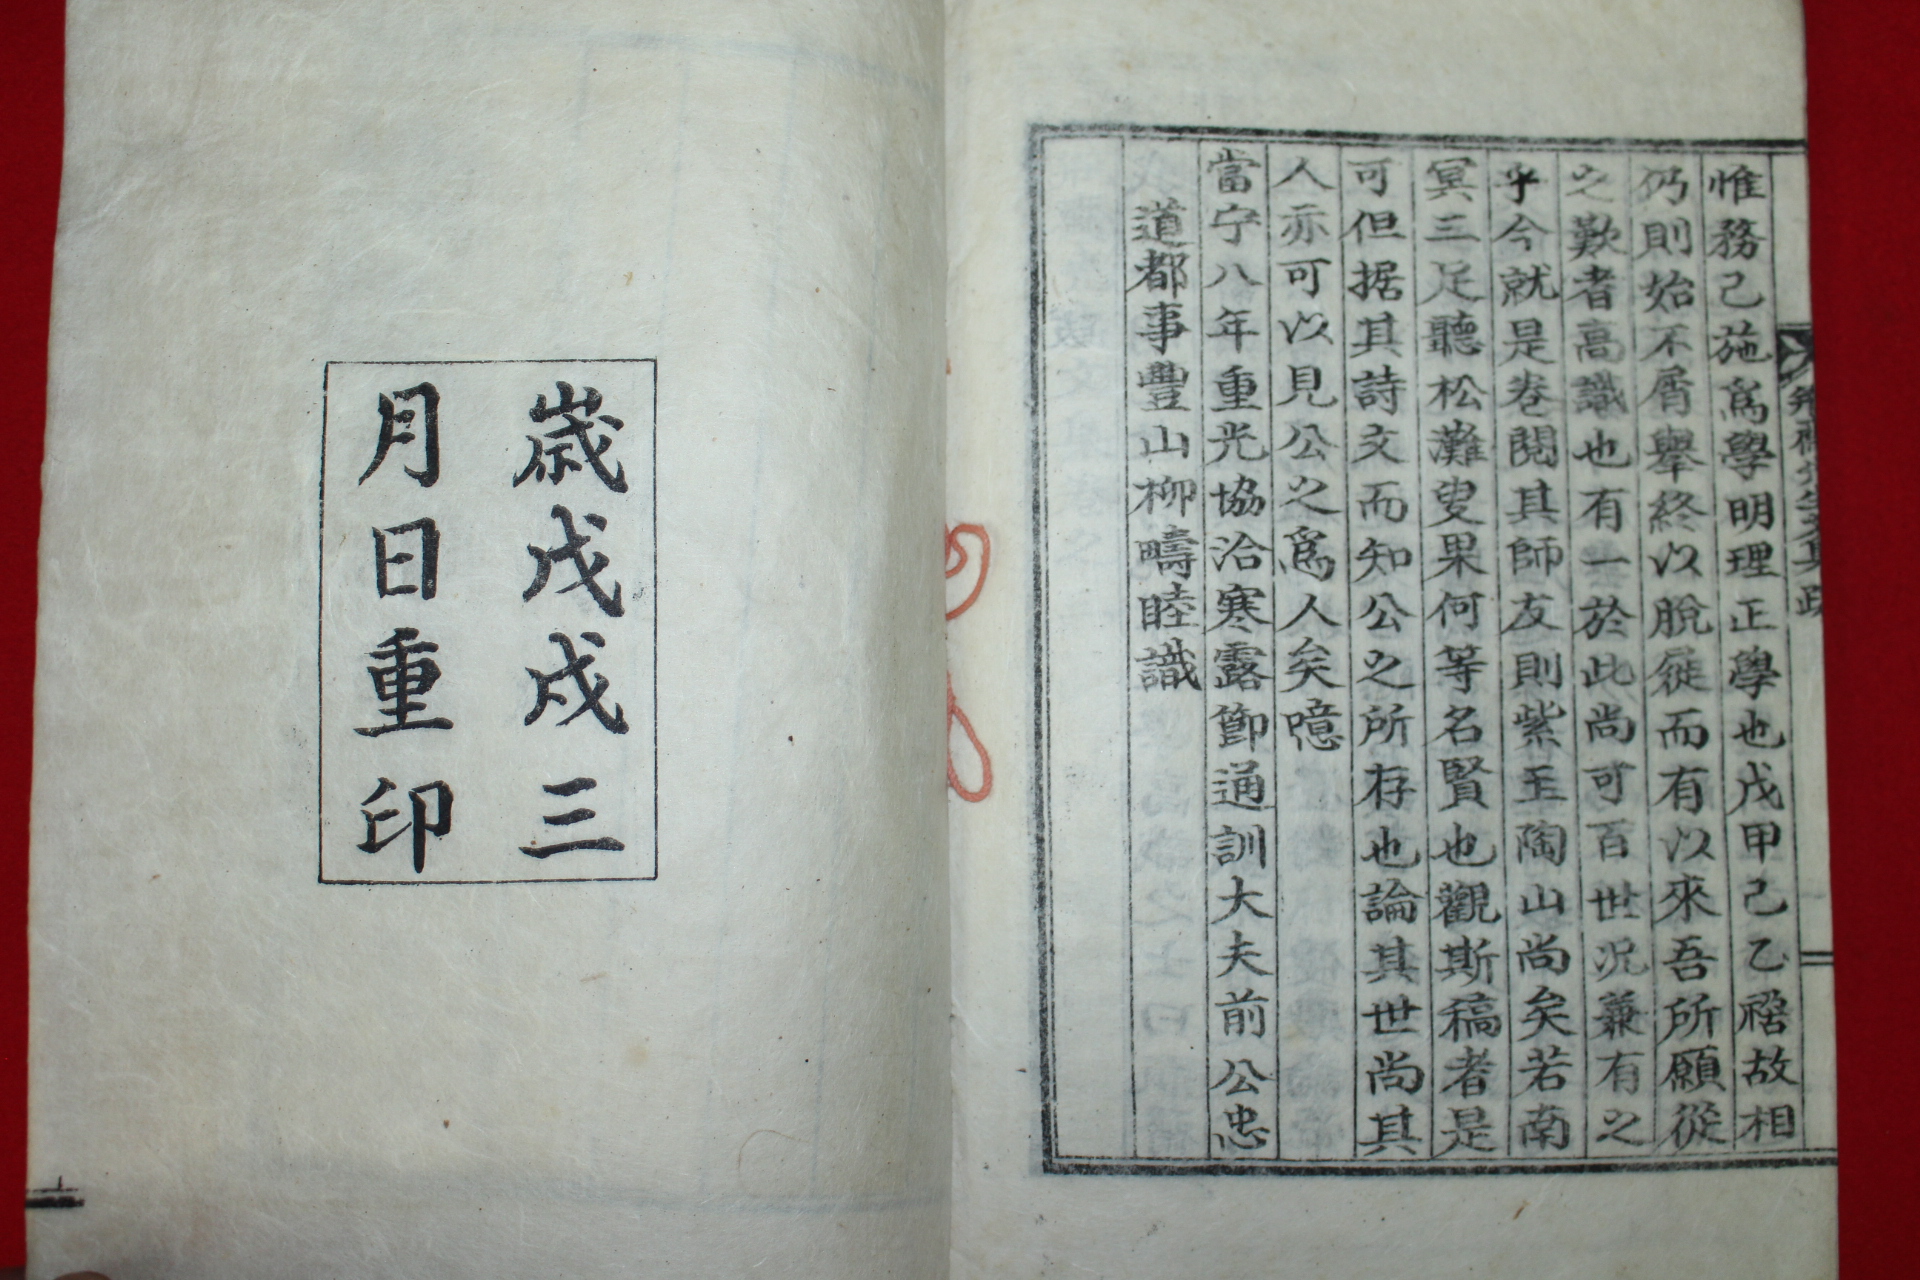 惟務己施爲學明理正學也戊甲己乙禍故相
仍則始不屑擧終以脫蹝而有以來吾所願從
之歎者高識也有一於此尚可百世况兼有之
乎今就是卷閱其師友則紫玉陶山尚矣若南
冥三足聽松灘叟果何等名賢也觀斯稿者是
可但据其詩文而知公之所存也論其世尚其
人亦可以見公之爲人矣噫
當宁八年重光協洽寒露節通訓大夫前公忠
道都事豐山柳疇睦識
歲戊戌三
月日重印